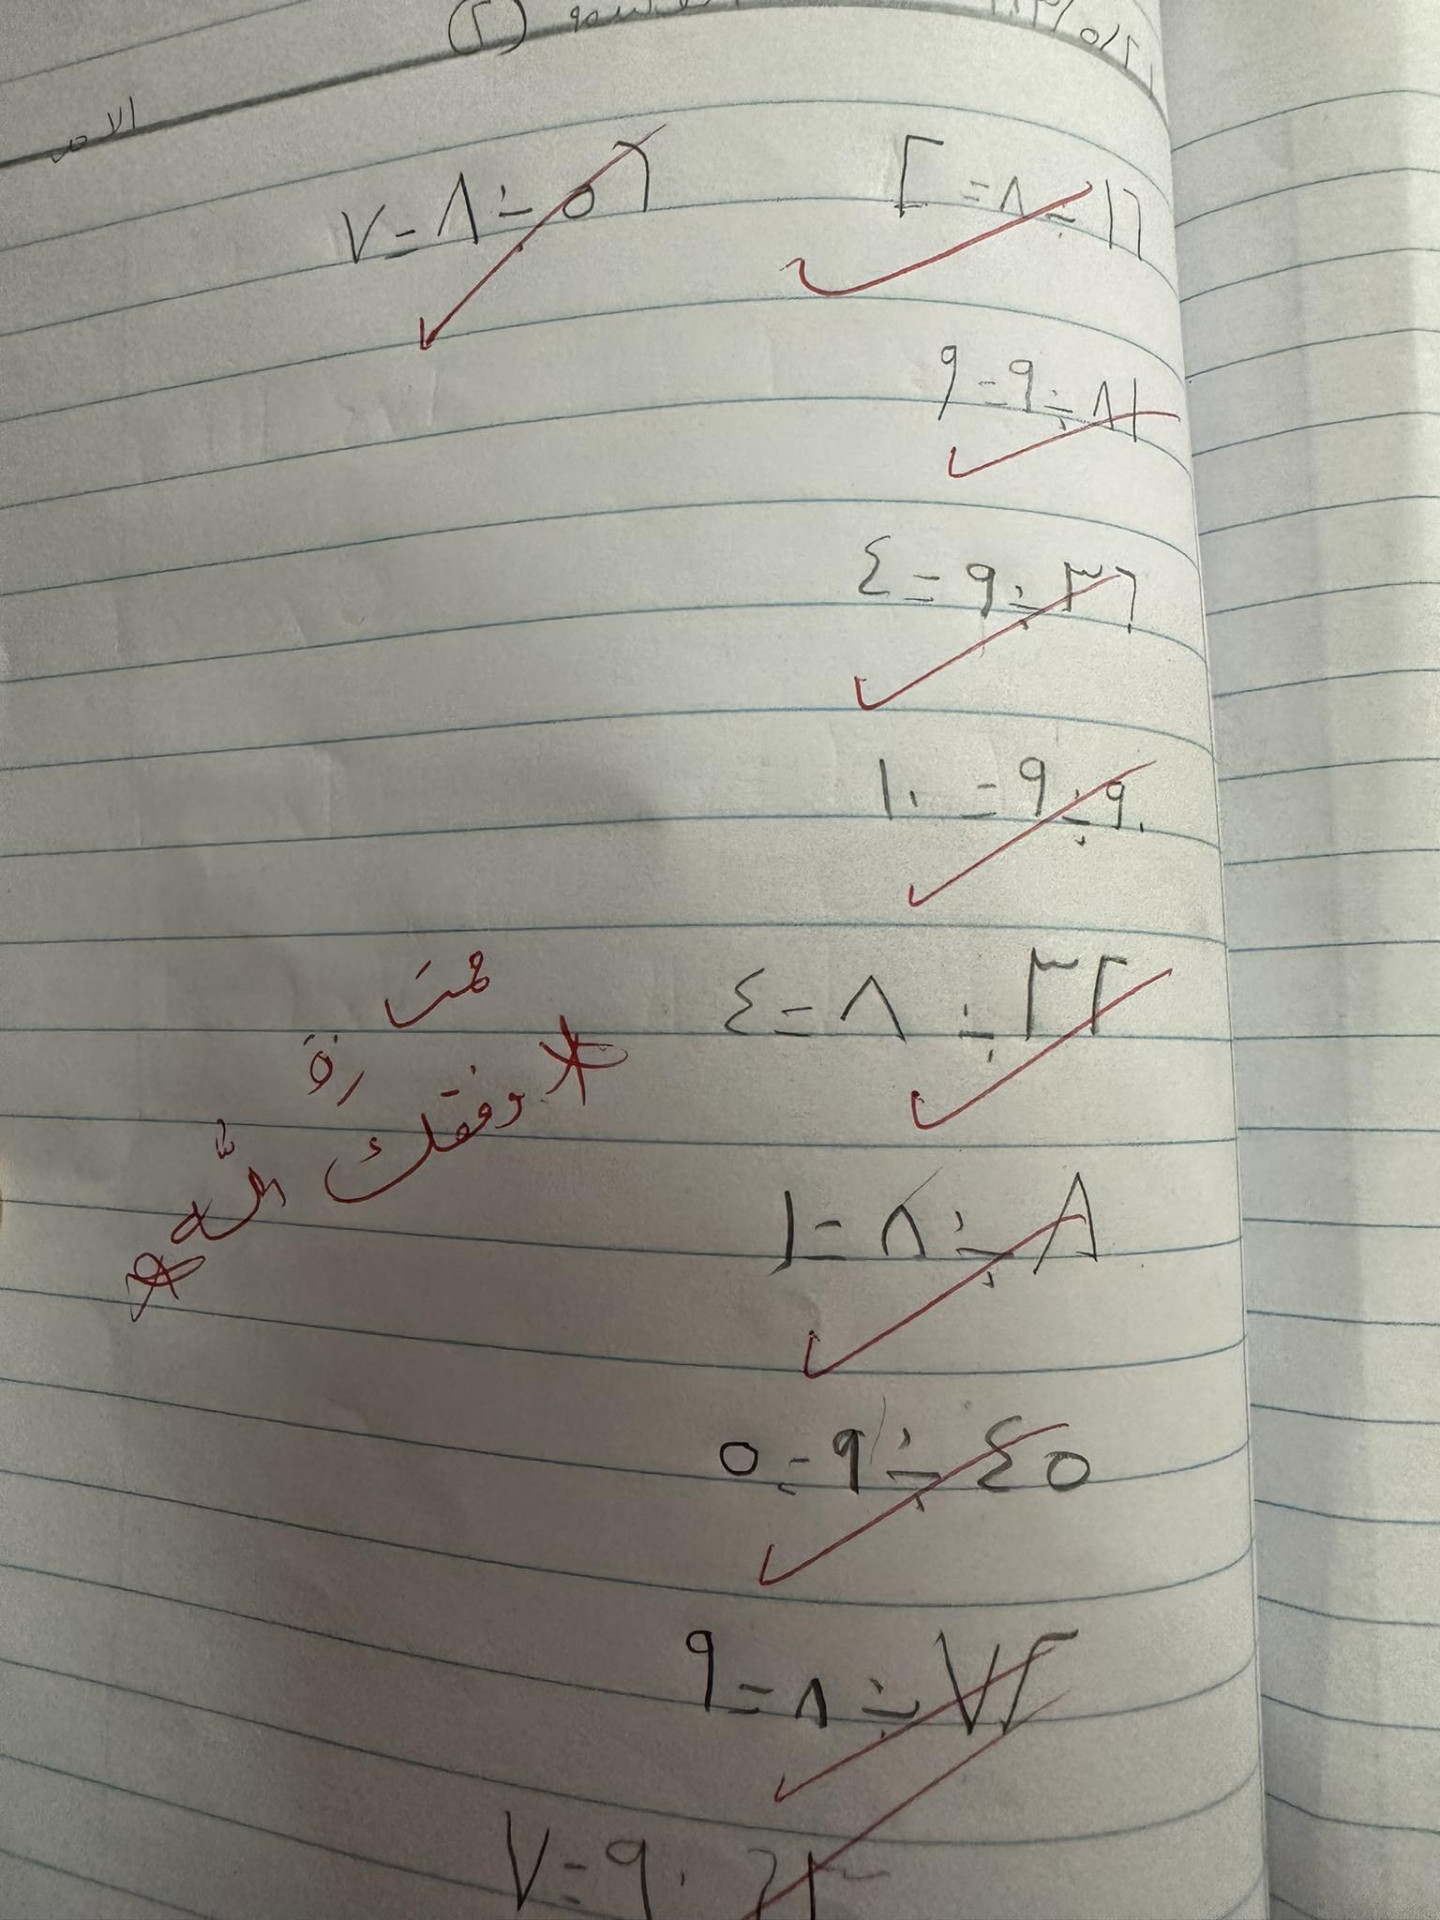 (٢)
١٦ ÷ ٨ = ٢
٥٦ ÷ ٨ = ٧
٨١ ÷ ٩ = ٩
٣٦ ÷ ٩ = ٤
٩٠ ÷ ٩ = ١٠
٣٢ ÷ ٨ = ٤
ممتازة
* وفقك الله *
٨ ÷ ٨ = ١
٤٥ ÷ ٩ = ٥
٧٢ ÷ ٨ = ٩
٩ = ٧